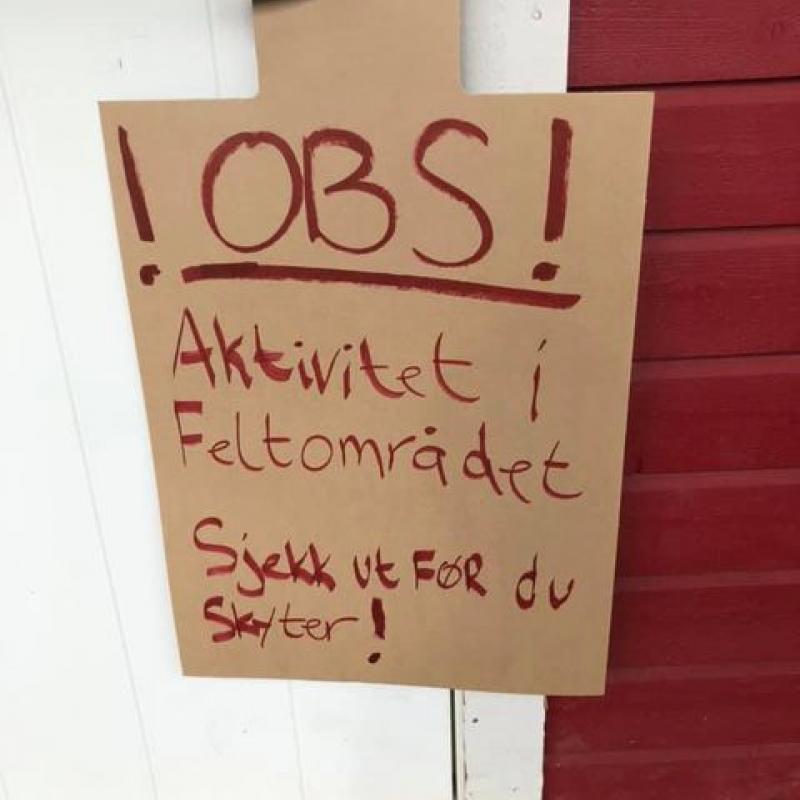 ! OBS !
Aktivitet i
Feltområdet
Sjekk ut FØR du
Skyter!